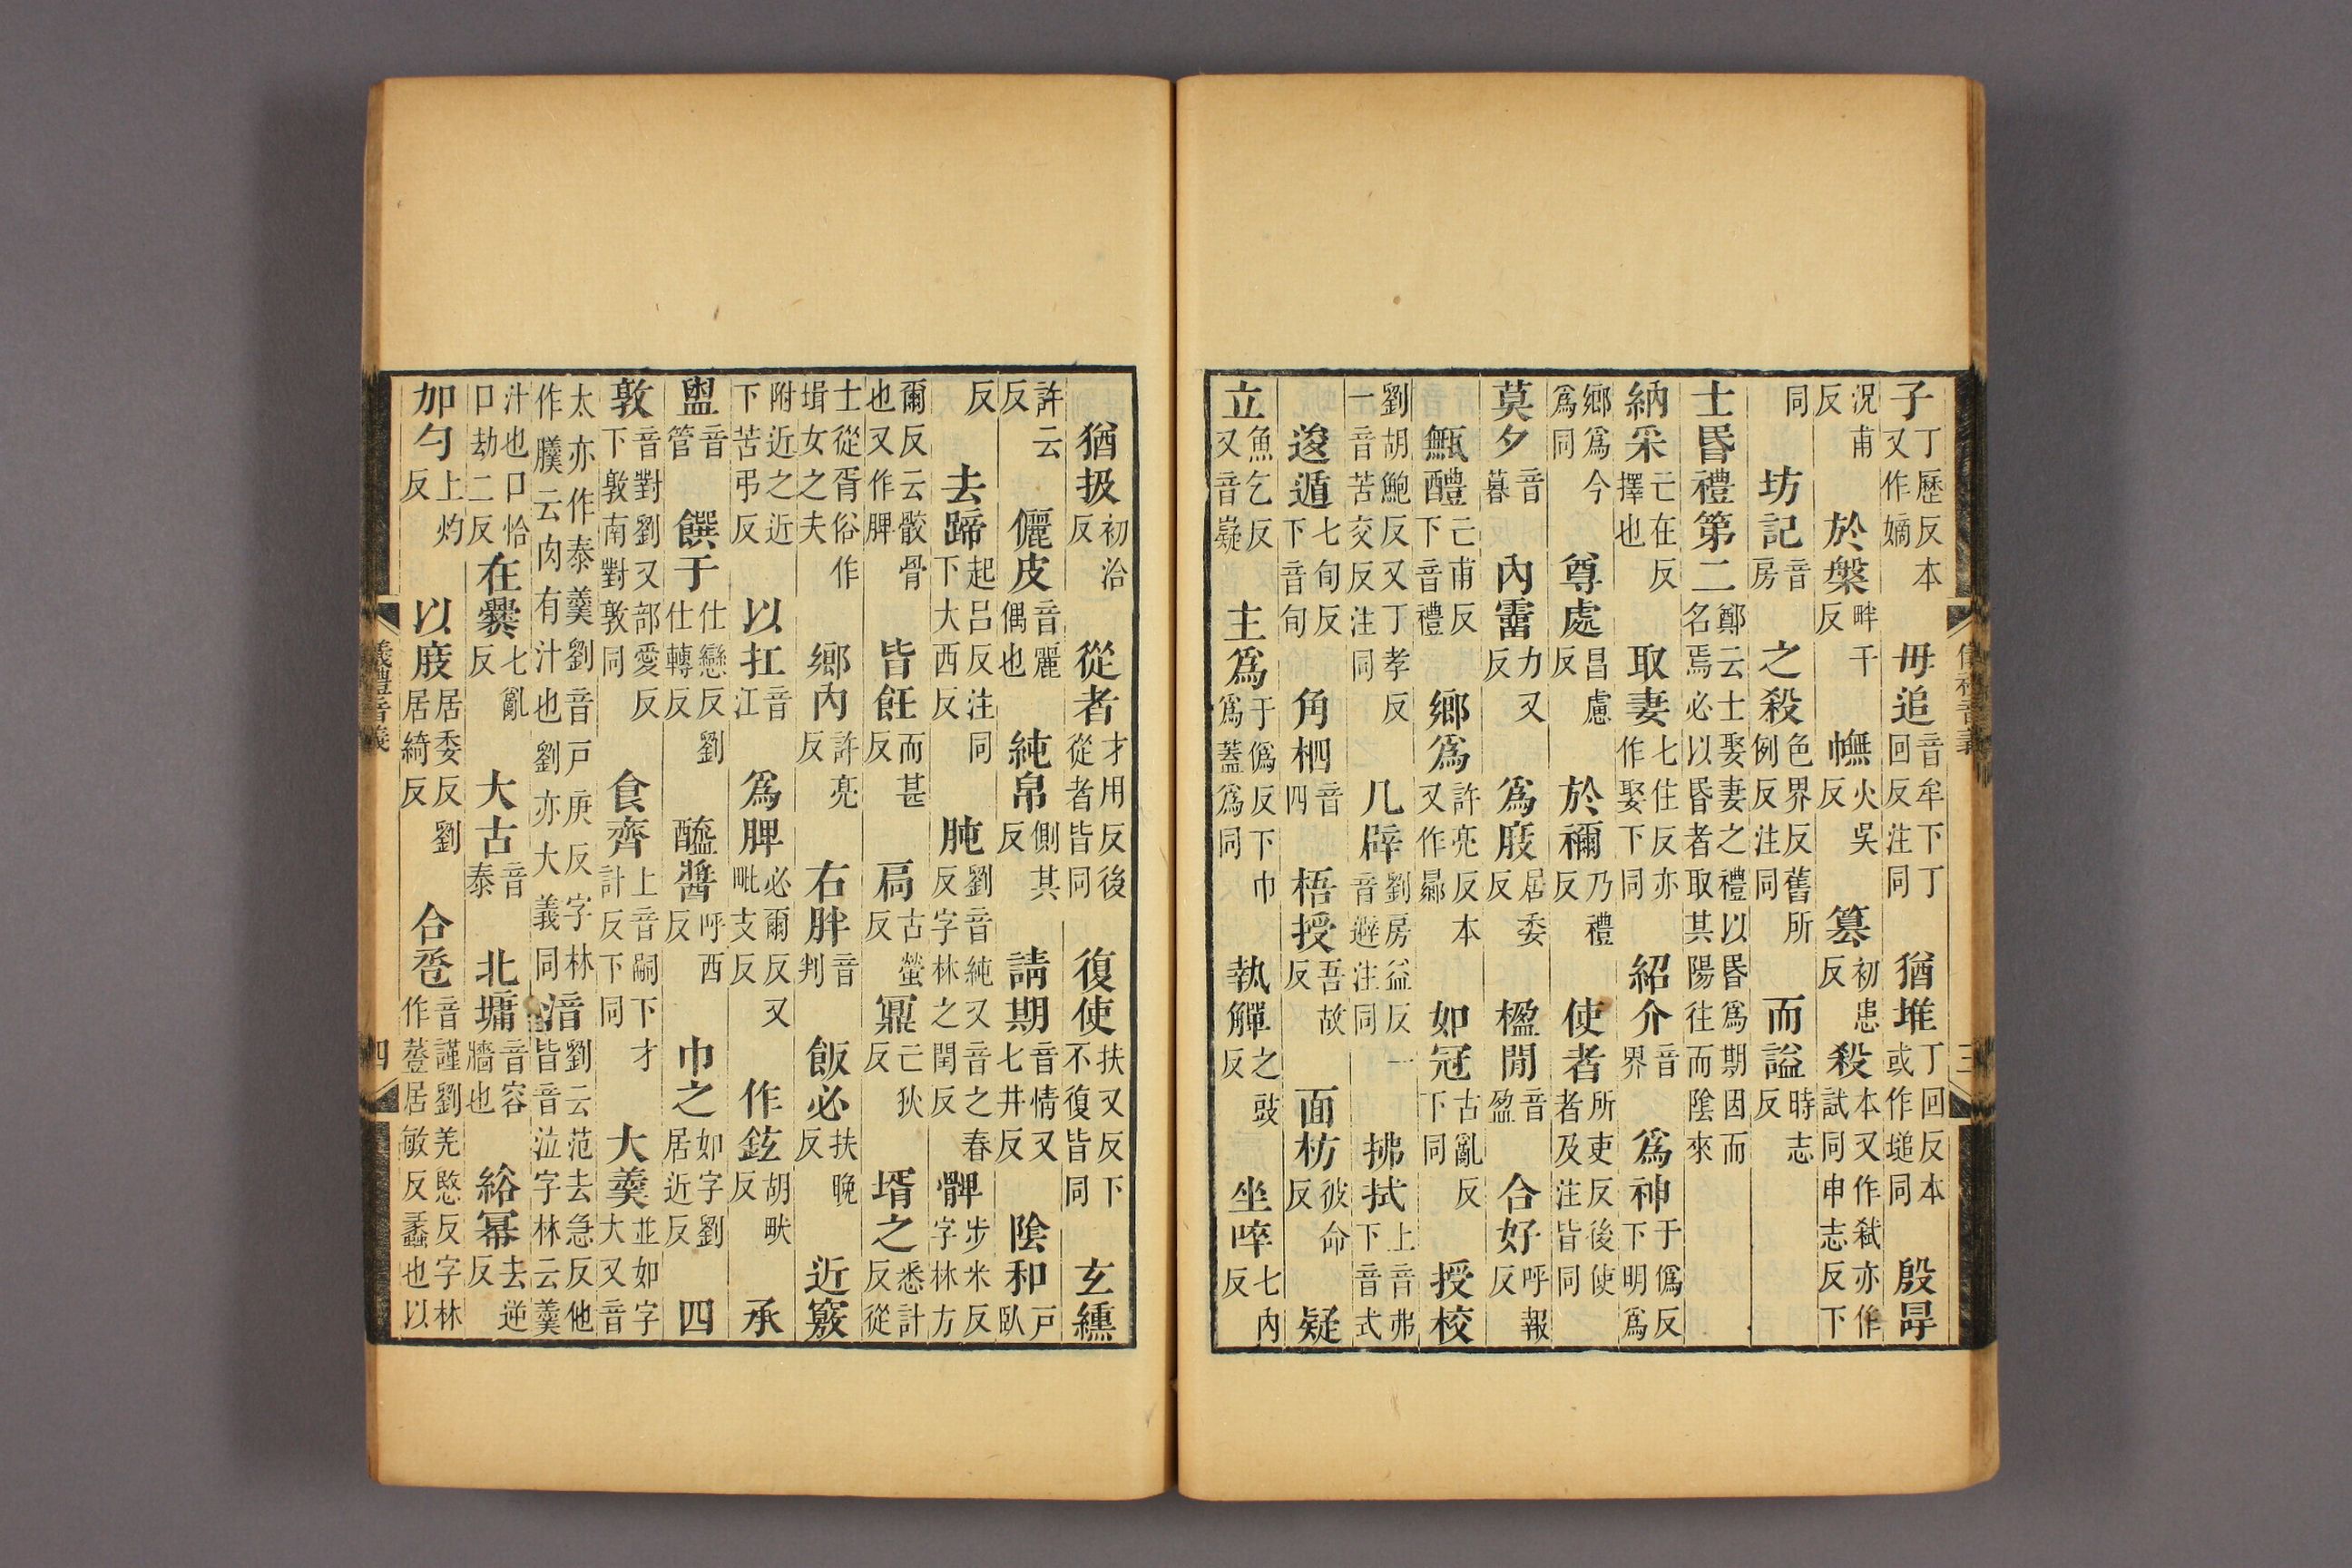 子丁歷反本又作嫡毋追音牟下丁回反注同猶堆丁回反本或作塠同殷冔
況甫反於槃畔干反幠火吳反篹初患反殺本又作弒亦作試同申志反下
同坊記音房之殺色界反舊所例反注同而諡時志反
士昬禮第二鄭云士娶妻之禮以昬爲期因而名焉必以昬者取其陽往而陰來
納采亡在反擇也取妻七住反亦作娶下同紹介音界爲神于僞反下明爲
鄉爲今爲同尊處昌慮反於禰乃禮反使者所吏反後使者及注皆同
莫夕音暮內霤力又反爲庪居委反楹閒音盈合好呼報反
甒醴亡甫反下音禮鄉爲許亮反本又作曏如冠古亂反下同授校
劉胡鮑反又丁孝反一音苦交反注同几辟劉房益反一音避注同拂拭上音弗下音式
逡遁七旬反下音旬角柶音四梧授吾故反面枋彼命反疑
立魚乞反又音嶷主爲于僞反下巾爲蓋爲同執觶之豉反坐啐七內反
儀禮音義
三
猶扱初洽反從者才用反後從者皆同復使扶又反下不復皆同玄纁
許云反儷皮音麗偶也純帛側其反請期音情又七井反陰和戶臥
反去蹄起呂反注同下大西反肫劉音純又音之春反字林之閏反髀步米反字林方
爾反云骸骨也又作脾皆飪而甚反扃古螢反鼏亡狄反壻之悉計反從
士從胥俗作壻女之夫鄉內許亮反右胖音判飯必扶晚反近竅
附近之近下苦弔反以扛音江爲脾必爾反又毗支反作鉉胡畎反承
盥音管饌于仕戀反劉仕轉反醯醬呼西反巾之如字劉居近反四
敦音對劉又部愛反下敦南對敦同食齊上音嗣下才計反下同大羹並如字大又音
太亦作泰羹劉音戶庚反字林作𦞦云肉有汁也劉亦大羹同湆劉云范去急反他皆音泣字林云羹
汁也口恰口劫二反在爨七亂反大古音泰北墉音容牆也綌冪去逆反
加勺上灼反以庪居委反劉居綺反合卺音謹劉羌愍反字林作蓳居敏反蠡也以
儀禮音義
四